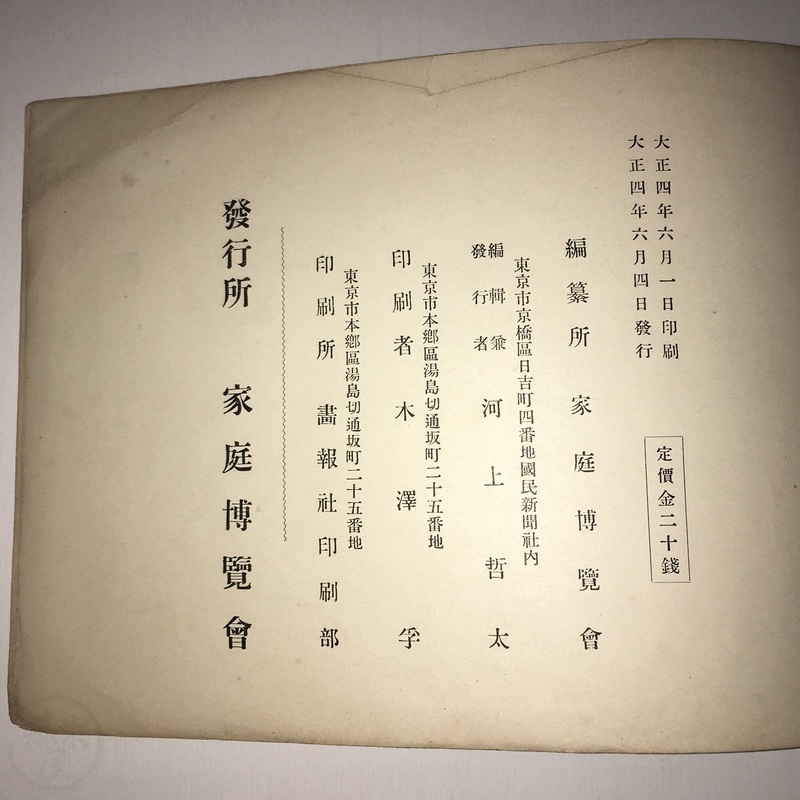 大正四年六月一日印刷
大正四年六月四日發行
定價金二十錢
編纂所 家庭博覽會
東京市京橋區日吉町四番地國民新聞社內
編輯兼
發行者
河上哲太
東京市本鄕區湯島切通坂町二十五番地
印刷者 木澤孚
東京市本鄕區湯島切通坂町二十五番地
印刷所 畵報社印刷部
發行所 家庭博覽會